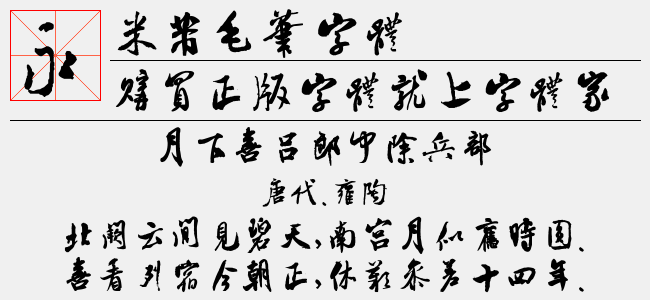 永
米芾毛筆字體
購買正版字體就上字體家
月下喜呂郎中除兵部
唐代、雍陶
北闕云間見碧天,南宮月似舊時圓.
喜看列宿今朝正,休歎參差十四年.